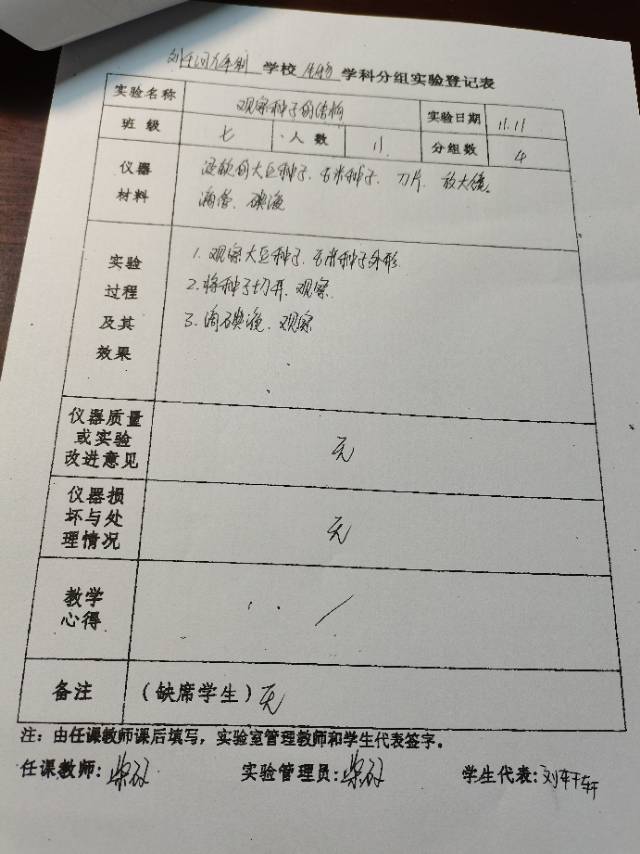 学校 生物 学科分组实验登记表
实验名称 观察种子的结构 实验日期 11.11
班级 七 人数 11 分组数 4
仪器材料 浸软的大豆种子、玉米种子、刀片、放大镜、
滴管、碘液
实验过程及其效果
1. 观察大豆种子、玉米种子外形
2. 将种子切开、观察
3. 滴碘液、观察
仪器质量或实验改进意见 无
仪器损坏与处理情况 无
教学心得 /
备注 (缺席学生) 无
注:由任课教师课后填写,实验室管理教师和学生代表签字。
任课教师: 实验管理员: 学生代表:刘轩轩